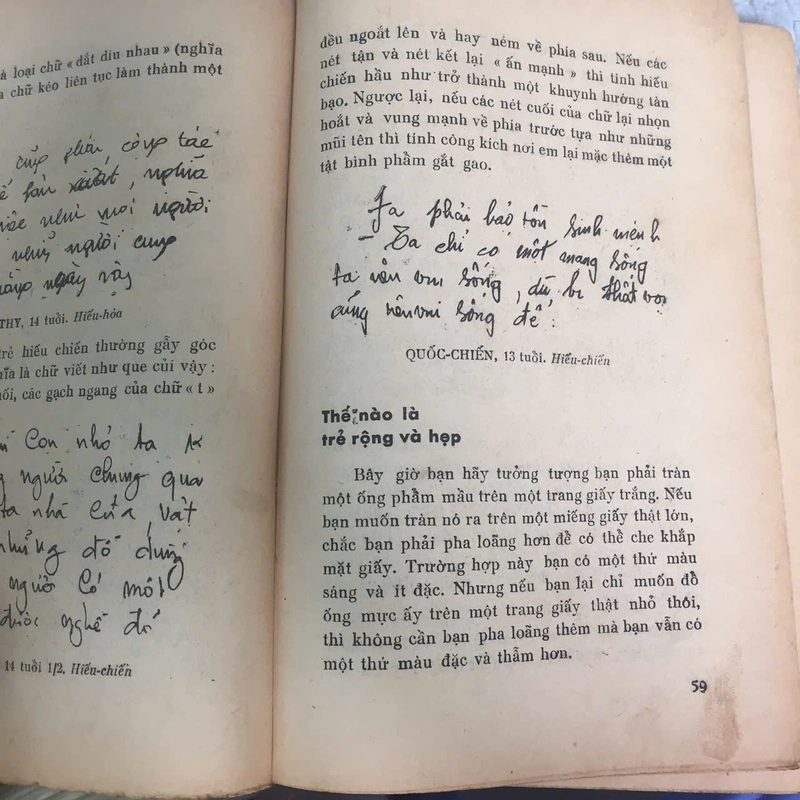 à loại chữ « dắt díu nhau » (nghĩa
chữ kéo liên tục làm thành một
cụp phải công tác
nghĩa
người
người cung
ngày này
THY, 14 tuổi. Hiếu-hòa
trẻ hiếu chiến thường gẫy góc
là chữ viết như que củi vậy :
các gạch ngang của chữ « t »
Con nhỏ ta
người chung qua
ta nhà cửa, vật
những đồ dùng
người có một
được nghề đó
14 tuổi 1/2. Hiếu-chiến
đều ngoắt lên và hay ném về phía sau. Nếu các
nét tận và nét kết lại « ấn mạnh » thì tính hiếu
chiến hầu như trở thành một khuynh hướng tàn
bạo. Ngược lại, nếu các nét cuối của chữ lại nhọn
hoắt và vung mạnh về phía trước tựa như những
mũi tên thì tính công kích nơi em lại mặc thêm một
tật bình phẩm gắt gao.
Ta phải bảo tồn sinh mệnh
- Ta chỉ có một mạng sống
ta nên vui sống, dù bị thất vọ
cũng nên vui sống để
QUỐC-CHIẾN, 13 tuổi. Hiếu-chiến
Thế nào là
trẻ rộng và hẹp
Bây giờ bạn hãy tưởng tượng bạn phải tràn
một ống phẩm mầu trên một trang giấy trắng. Nếu
bạn muốn tràn nó ra trên một miếng giấy thật lớn,
chắc bạn phải pha loãng hơn để có thể che khắp
mặt giấy. Trường hợp này bạn có một thứ màu
sáng và ít đặc. Nhưng nếu bạn lại chỉ muốn đổ
ống mực ấy trên một trang giấy thật nhỏ thôi,
thì không cần bạn pha loãng thêm mà bạn vẫn có
một thứ màu đặc và thẫm hơn.
59